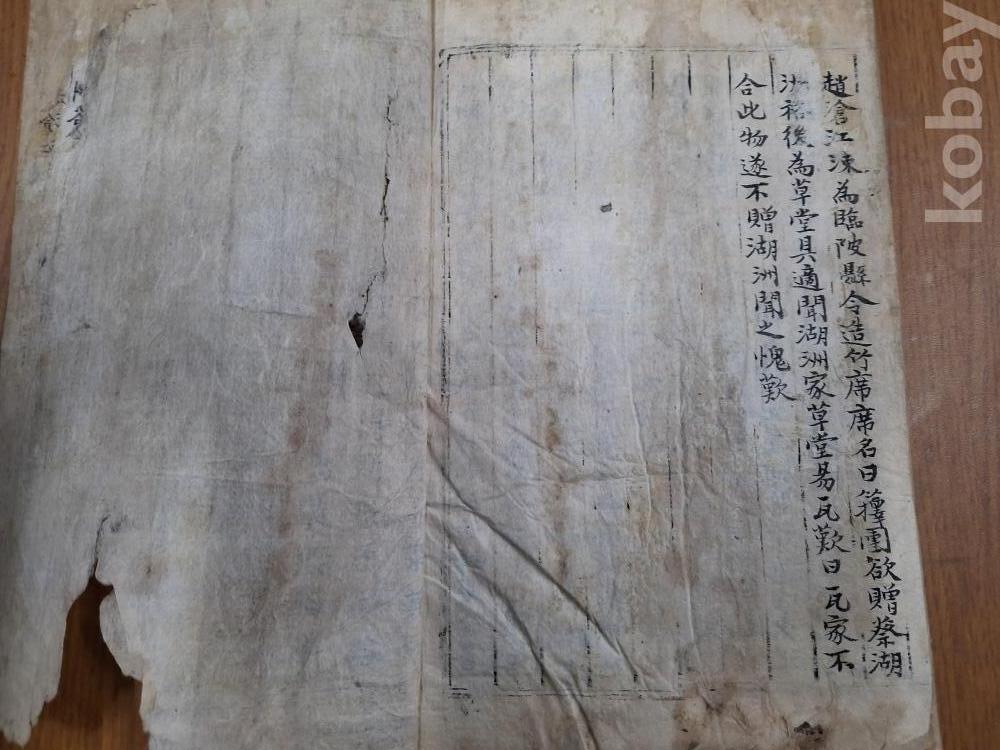 趙滄江涑為臨陂縣令造竹席席名曰籜團欲贈蔡湖
洲裕後為草堂具適聞湖洲家草堂易瓦歎曰瓦家不
合此物遂不贈湖洲聞之愧歎
kobay